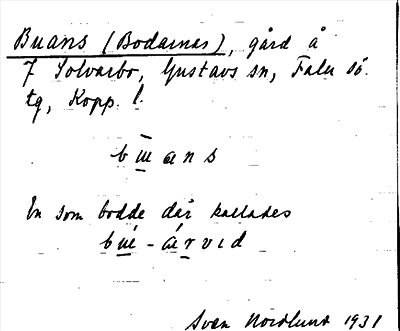 Buans (Bodarnas), gård å
7 Solvarbo, Gustavs sn, Falu sö.
tg, Kopp. l.
b u̅͟a n s
En som bodde där kallades
b u͟é - á r v ɪ d
Sven Nordlund 1931